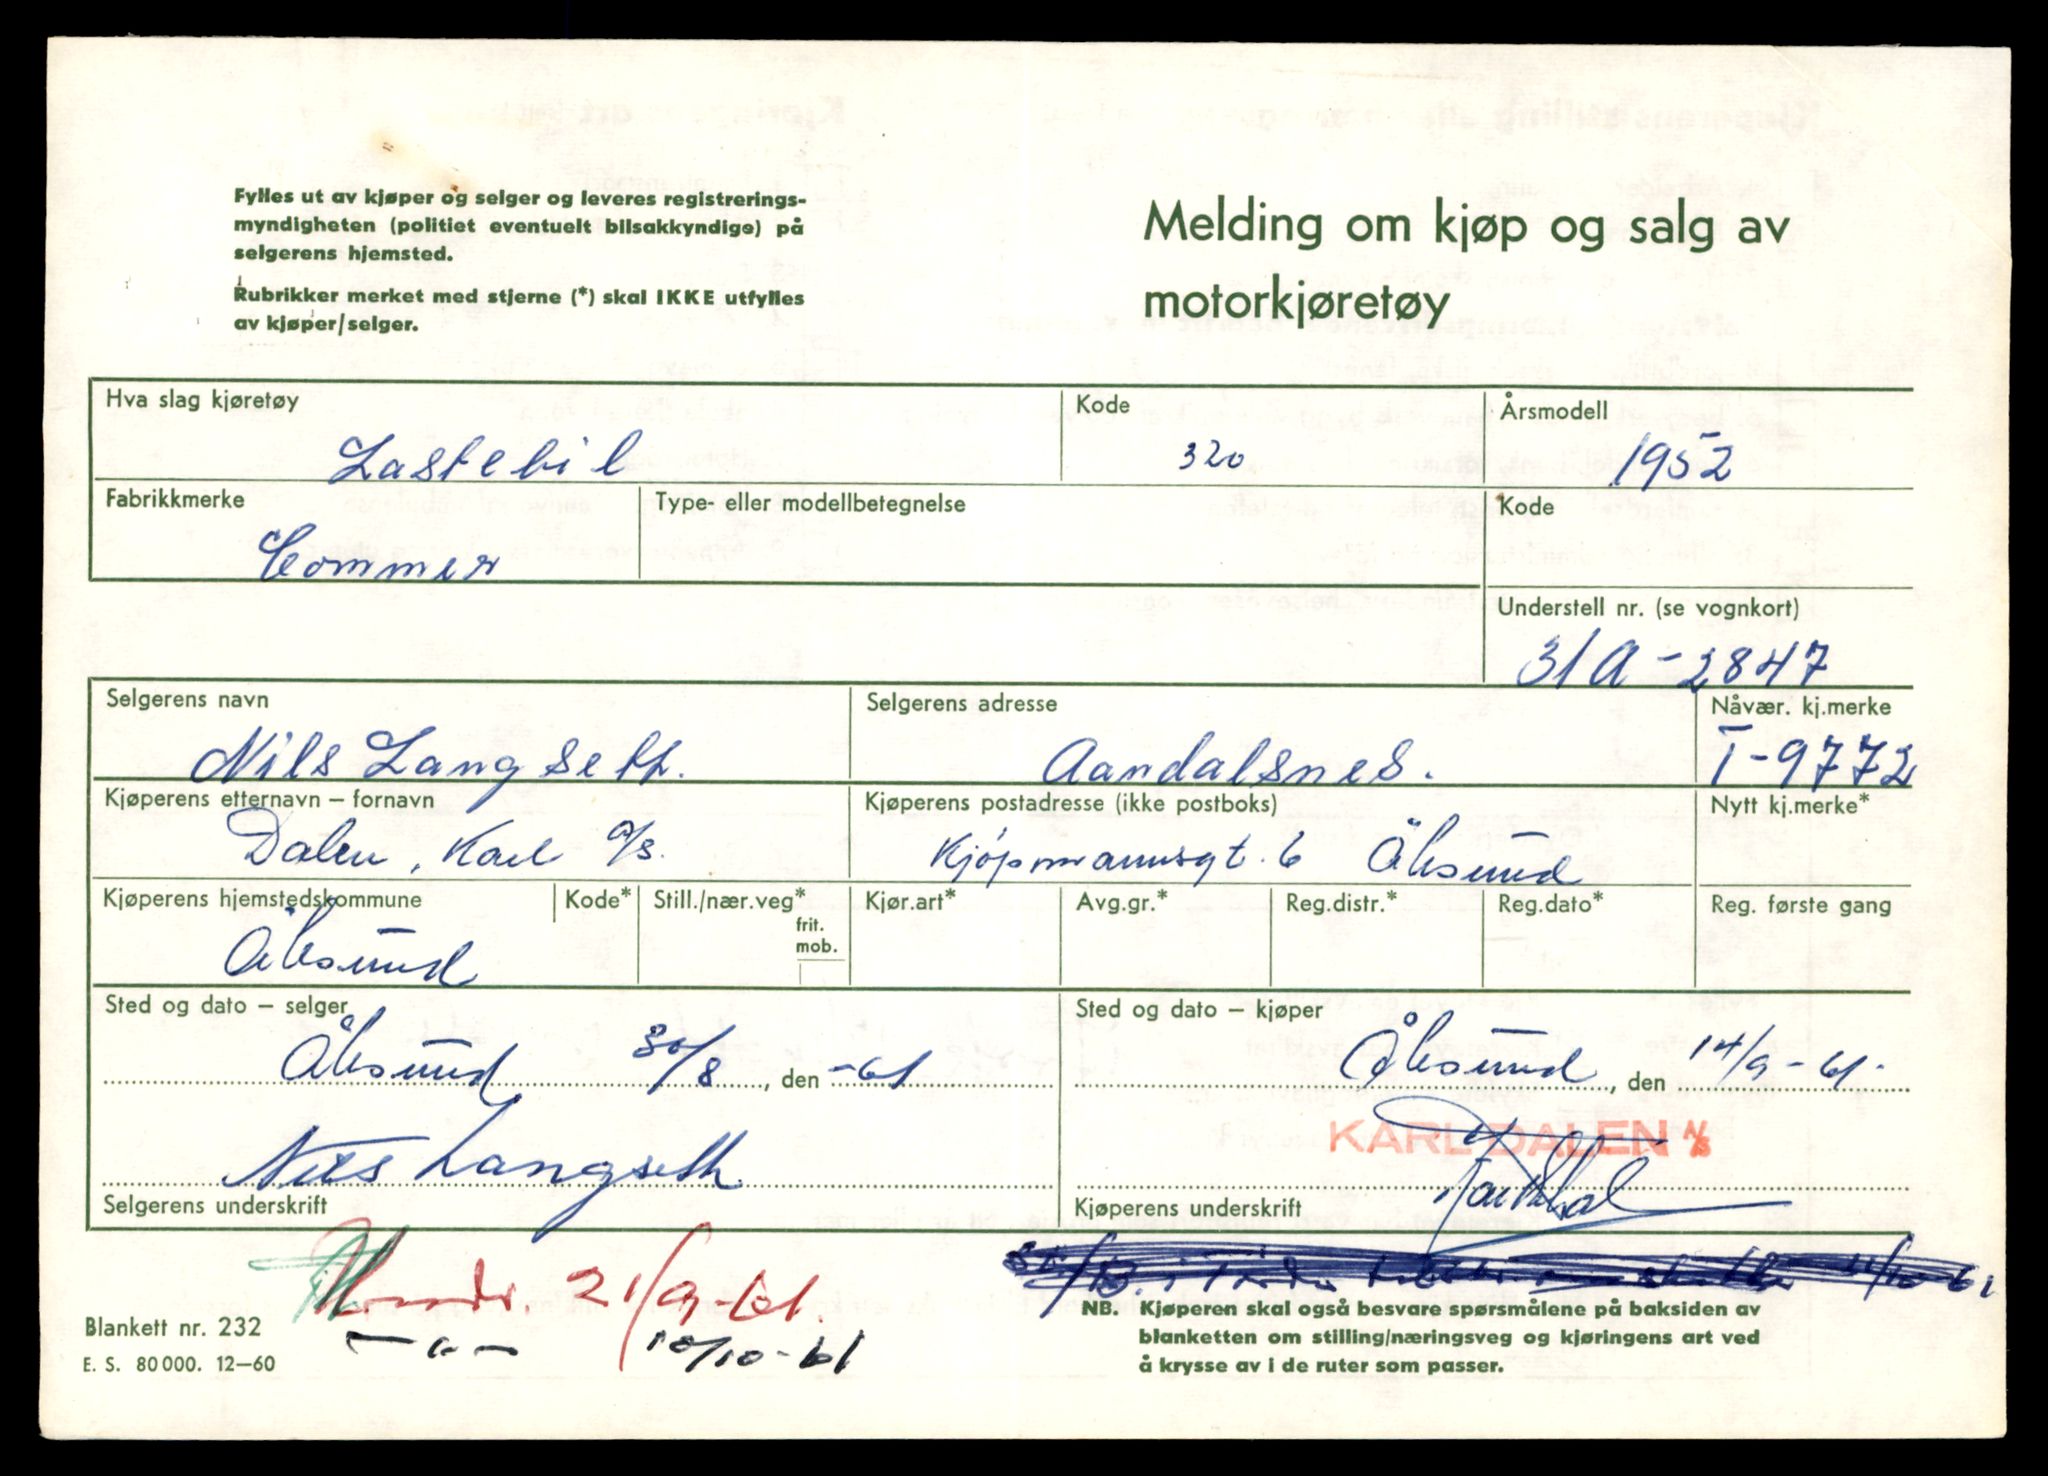 Fylles ut av kjøper og selger og leveres registrerings-
myndigheten (politiet eventuelt bilsakkyndige) på
selgerens hjemsted.
Rubrikker merket med stjerne (*) skal IKKE utfylles
av kjøper/selger.
Melding om kjøp og salg av
motorkjøretøy
Hva slag kjøretøy
Lastebil
Kode
320
Årsmodell
1952
Fabrikkmerke
Commer
Type- eller modellbetegnelse
Kode
Understell nr. (se vognkort)
31A-2847
Selgerens navn
Nils Langseth.
Selgerens adresse
Aandalsnes.
Nåvær. kj.merke
T-9772
Kjøperens etternavn – fornavn
Dalen, Karl a/s.
Kjøperens postadresse (ikke postboks)
Kjøpmannsgt. 6 Ålesund
Nytt kj.merke*
Kjøperens hjemstedskommune
Ålesund
Kode*
Still./nær.veg*
frit.
mob.
Kjør.art*
Avg.gr.*
Reg.distr.*
Reg.dato*
Reg. første gang
Sted og dato – selger
Ålesund 30/8, den -61
Sted og dato – kjøper
Ålesund, den 14/9-61.
Nils Langseth
KARL DALEN A/S
Selgerens underskrift
Kjøperens underskrift
21/9-61.
-"- 10/10-61
11/10-61
Blankett nr. 232
E. S. 80 000. 12–60
NB. Kjøperen skal også besvare spørsmålene på baksiden av
blanketten om stilling/næringsveg og kjøringens art ved
å krysse av i de ruter som passer.